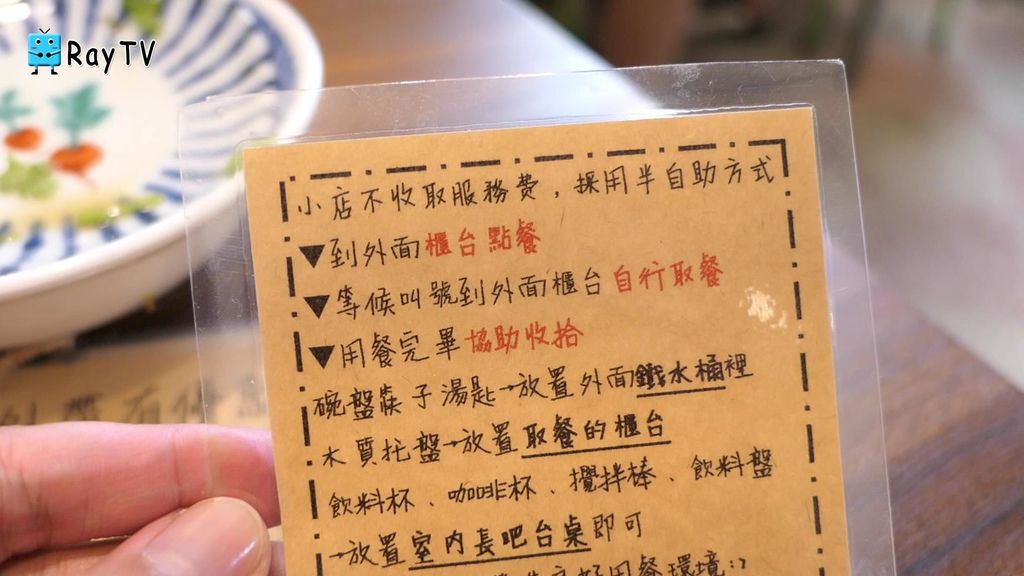 RayTV
小店不收取服務費，採用半自助方式
▼到外面櫃台點餐
▼等候叫號到外面櫃台自行取餐
▼用餐完畢協助收拾
碗盤筷子湯匙→放置外面鐵水桶裡
木質托盤→放置取餐的櫃台
飲料杯、咖啡杯、攪拌棒、飲料盤
→放置室內長吧台桌即可
用餐環境:)